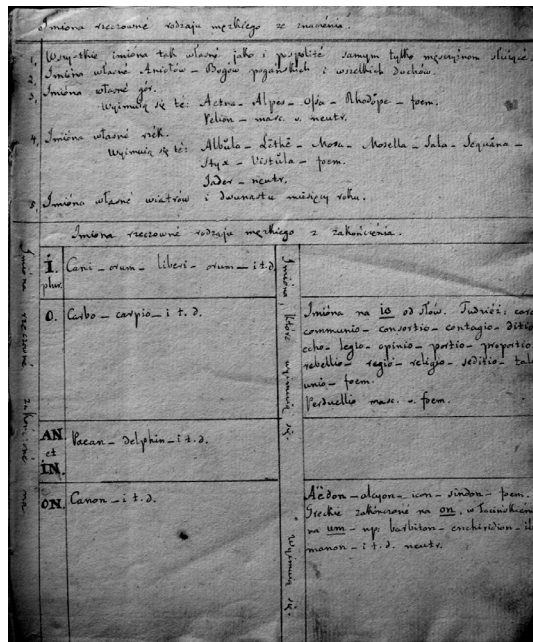 Imiona rzeczowné rodzaju męzkiego ze znaczenia.
1, Wszystkie imiona tak własné jako i pospolité samym tylko męsczyznom służącé.
2. Imióna własné Aniołów – Bogów pogańskich i wszelkich duchów.
3, Imióna własné gór.
Wyimuią się té: Aetna – Alpes – Ossa – Rhodŏpe – foem.
Pelion – masc. v. neutr.
4. Imióna własné rzék.
Wyimuią się té: Albŭla – Léthé – Mosa – Mosella – Sala – Sequăna –
Styx – Vistŭla – foem.
Jader – neutr.
5, Imióna własné wiatrów i dwunastu miesięcy roku.
Imiona rzeczowné rodzaju męzkiego z zakończenia.
Imióna rzeczowné zakończoné na
I. plur.
Cani – orum – liberi – orum – i t. d.
O.
Carbo – carpio – i t. d.
AN et IN.
Paean – delphin – i t. d.
ON.
Canon – i t. d.
Imióna, któré wyimuią się.
Wyimuią się.
Imióna na io od słów. Tudzież: caro
communio – consortio – contagio – ditio
echo – legio – opinio – portio – proportio
rebellio – regio – religio – seditio – tal
unio – foem.
Perduellio masc. v. foem.
Aëdon – alcyon – icon – sindon – foem.
Greckié zakończoné na on, w łacińskiém
na um – np: barbiton – enchiridion – ili
manon – i t. d. neutr.